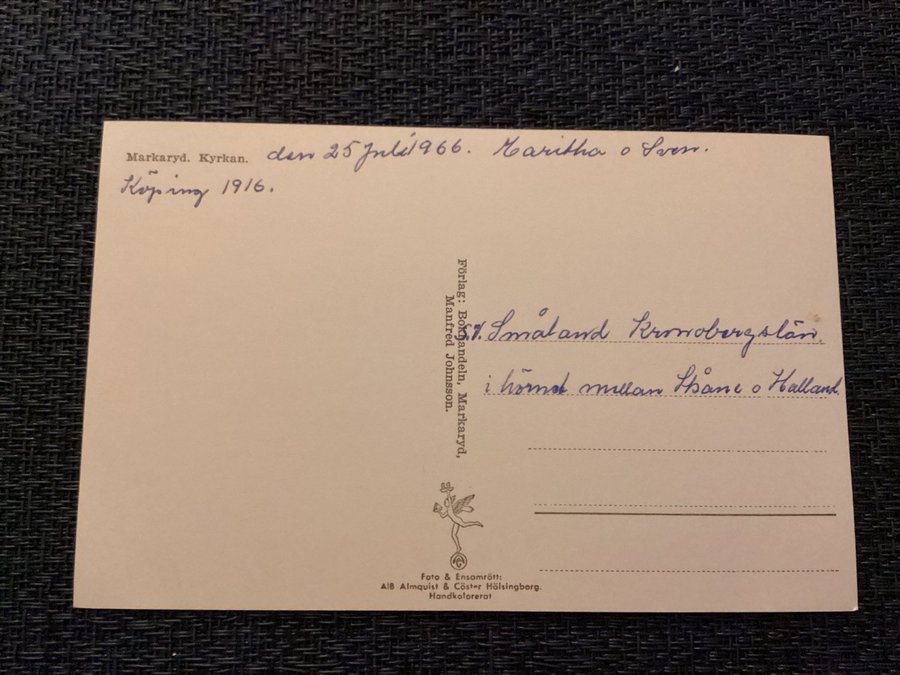 Markaryd. Kyrkan. den 25 Juli 1966. Maritha o Sven.
Köping 1916.
Förlag: Bokhandeln, Markaryd,
Manfred Johnsson.
Småland Kronobergslän.
i hörnet mellan Skåne o Halland
Foto & Ensamrätt:
A/B Almquist & Cöster Hälsingborg.
Handkolorerat